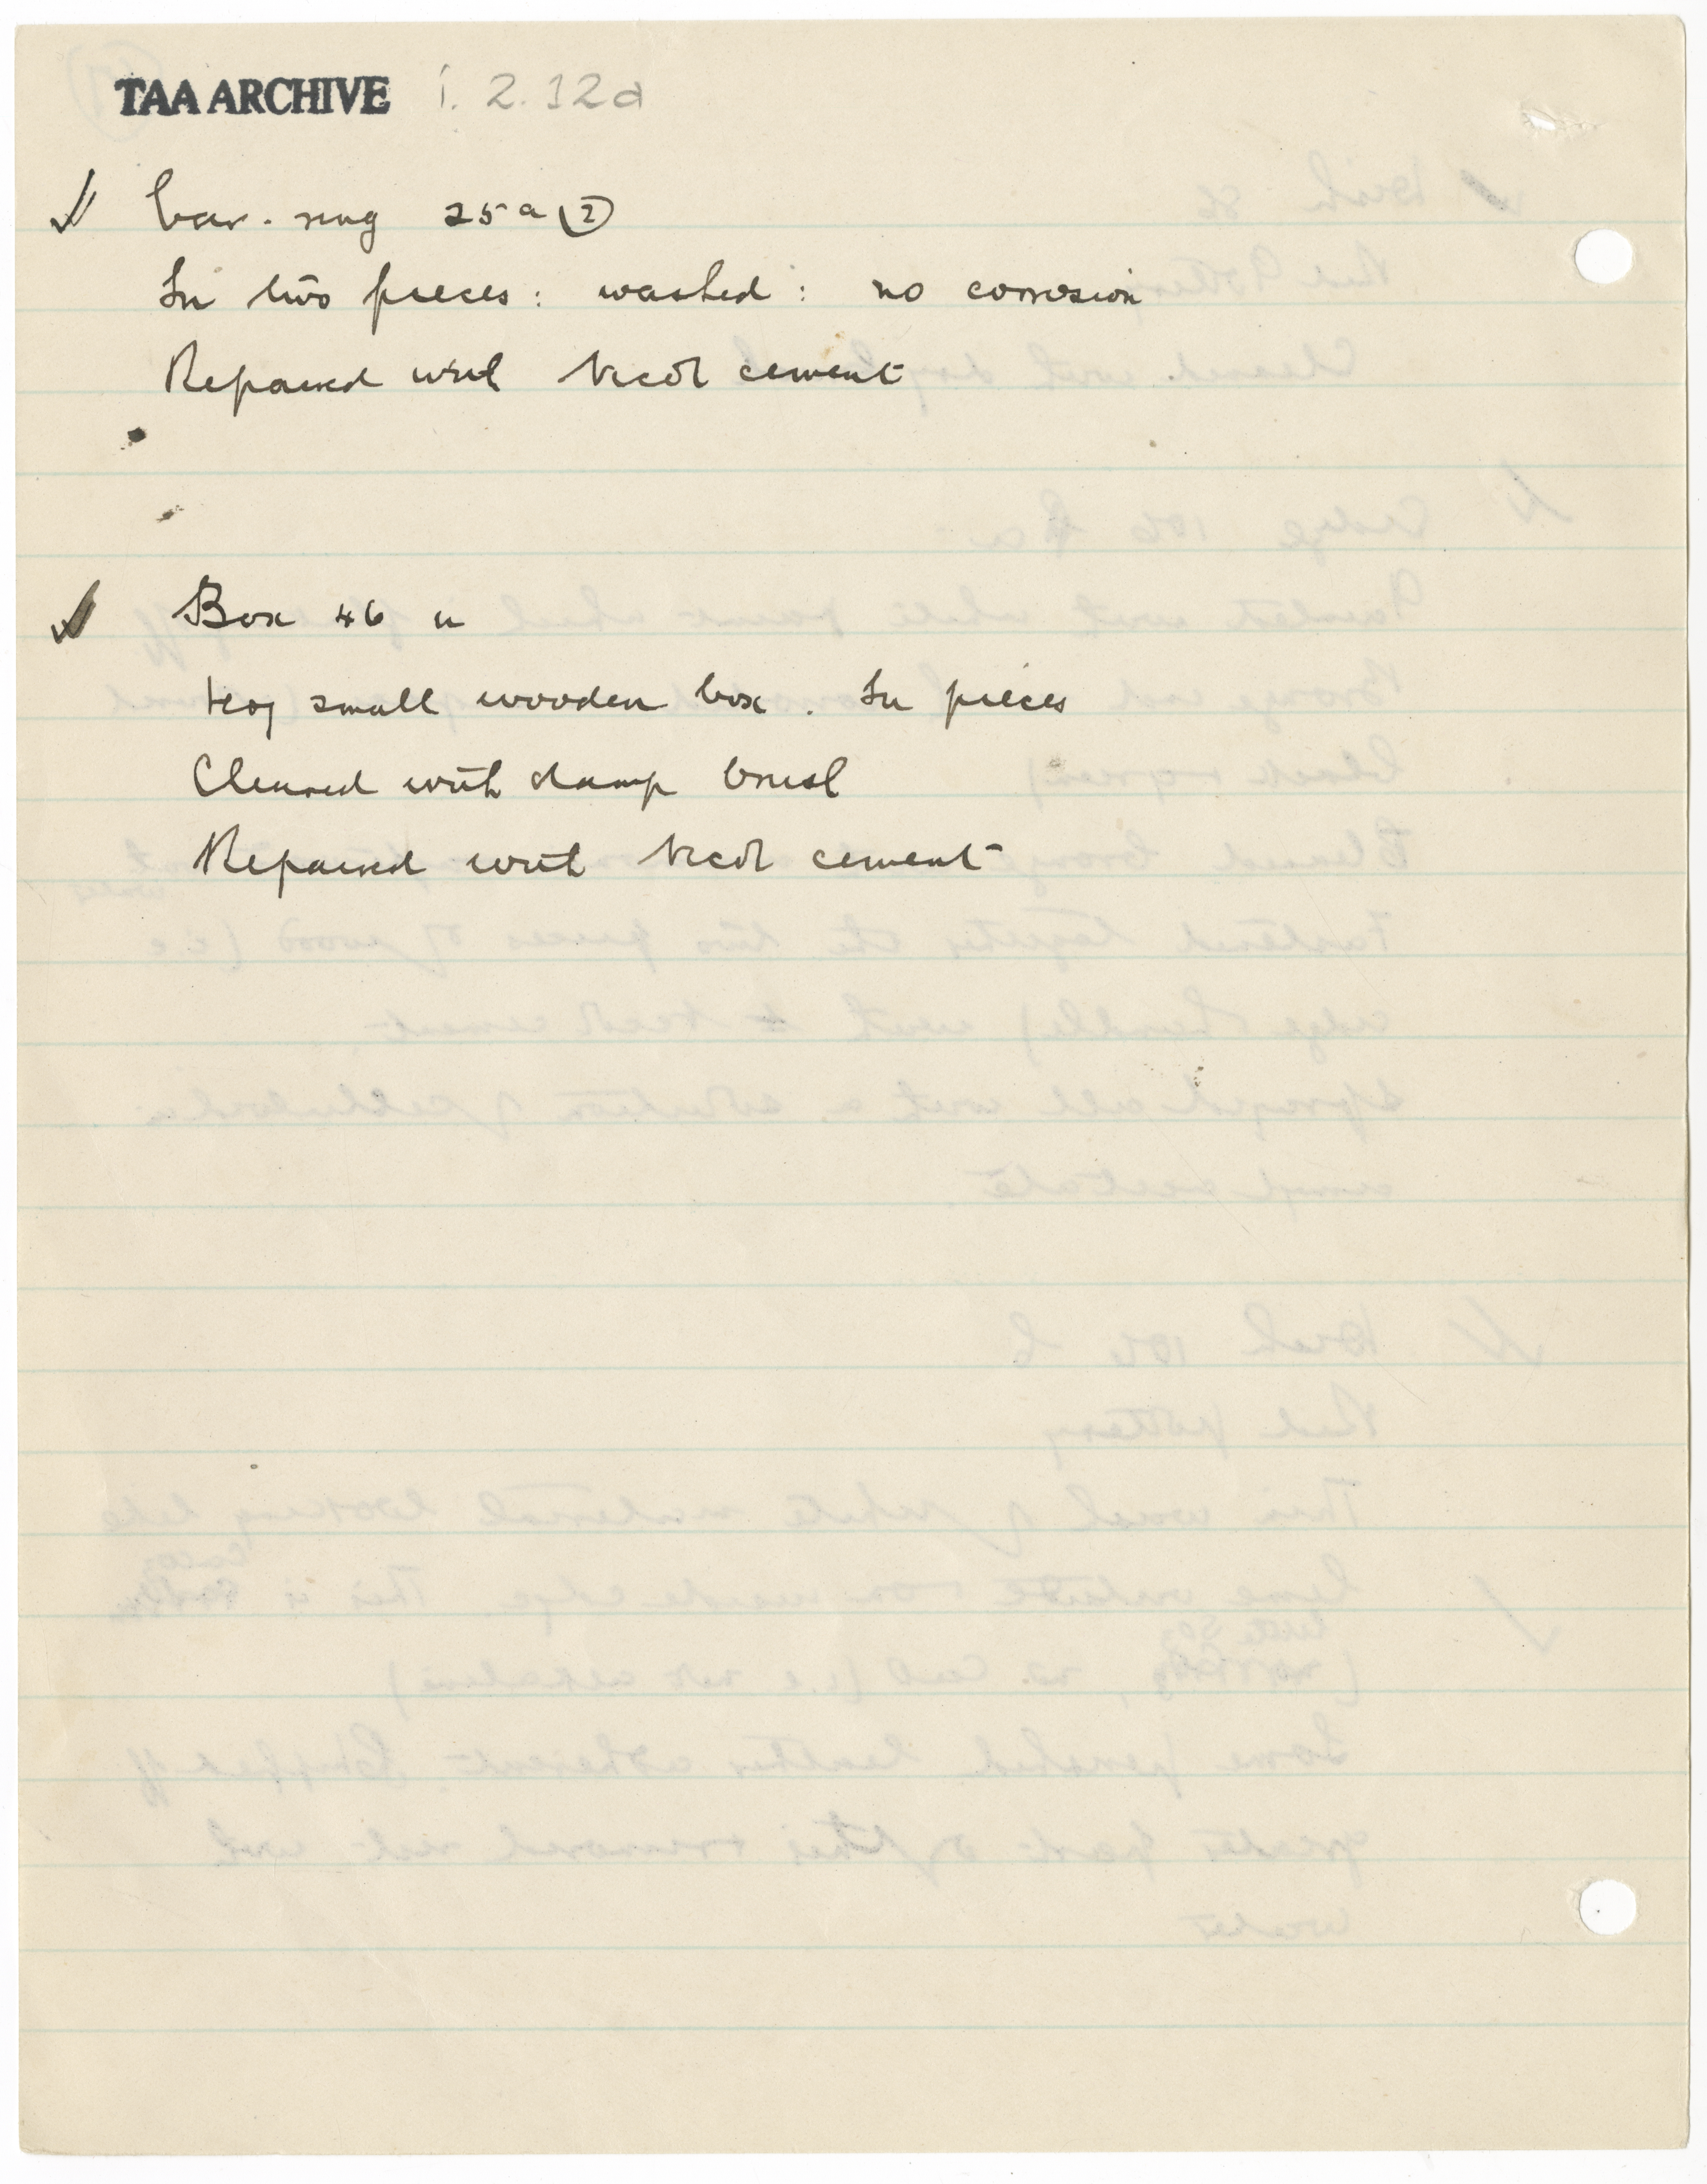 TAA ARCHIVE i. 2. 12d
Ear-ring 25a (2)
In two pieces: washed: no corrosion
Repaired with Necol cement
Box 46 u
small wooden box. In pieces
Cleaned with damp brush
Repaired with Necol cement